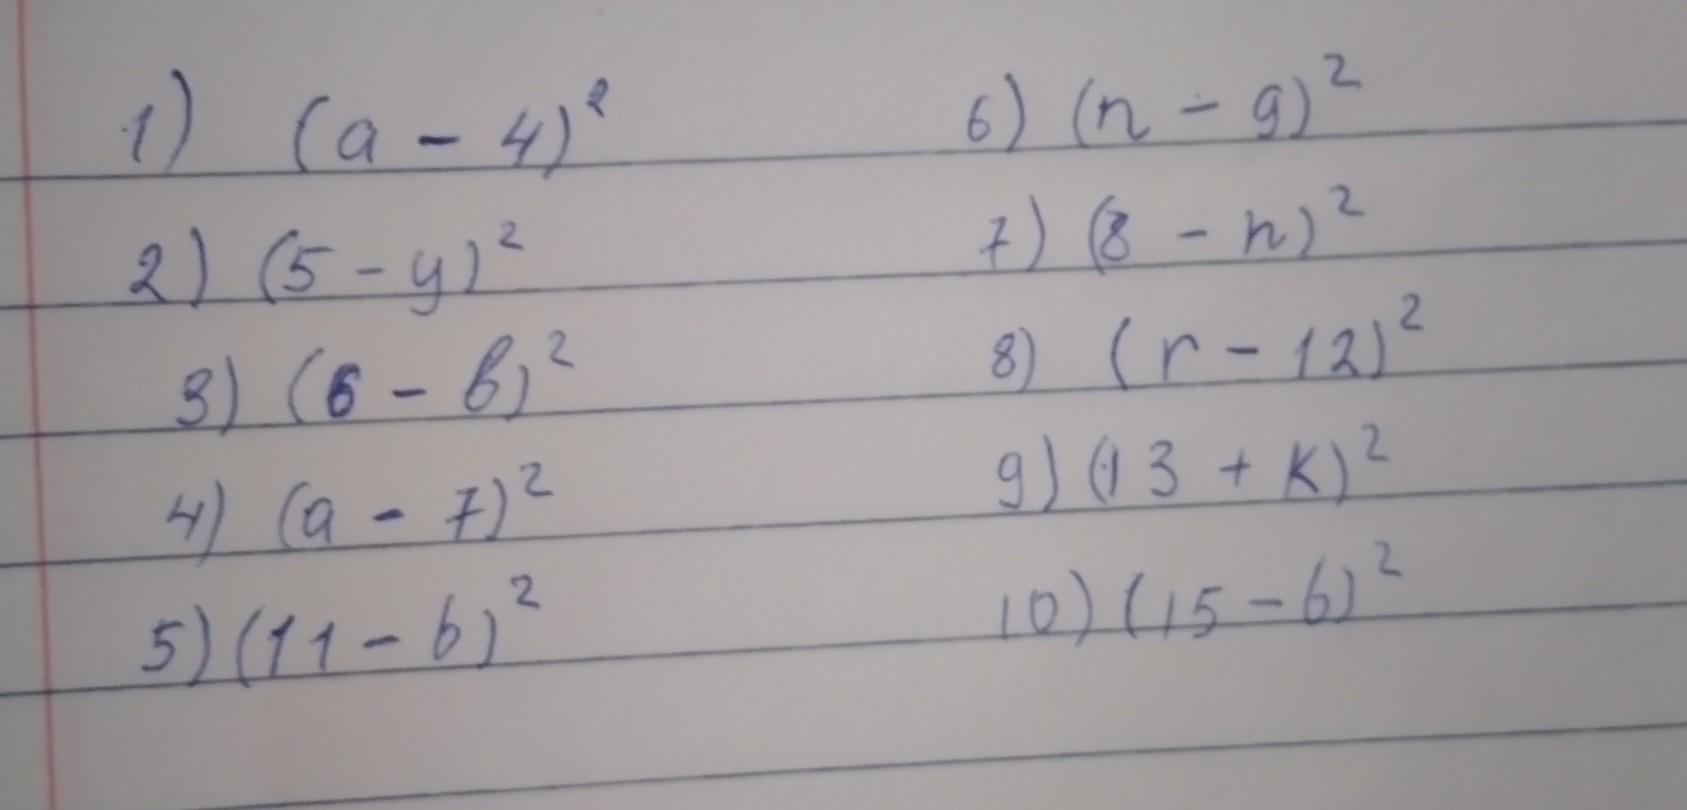 1) (a - 4)²
2) (5 - y)²
3) (6 - b)²
4) (a - 7)²
5) (11 - b)²
6) (n - 9)²
7) (8 - n)²
8) (r - 12)²
9) (13 + k)²
10) (15 - b)²